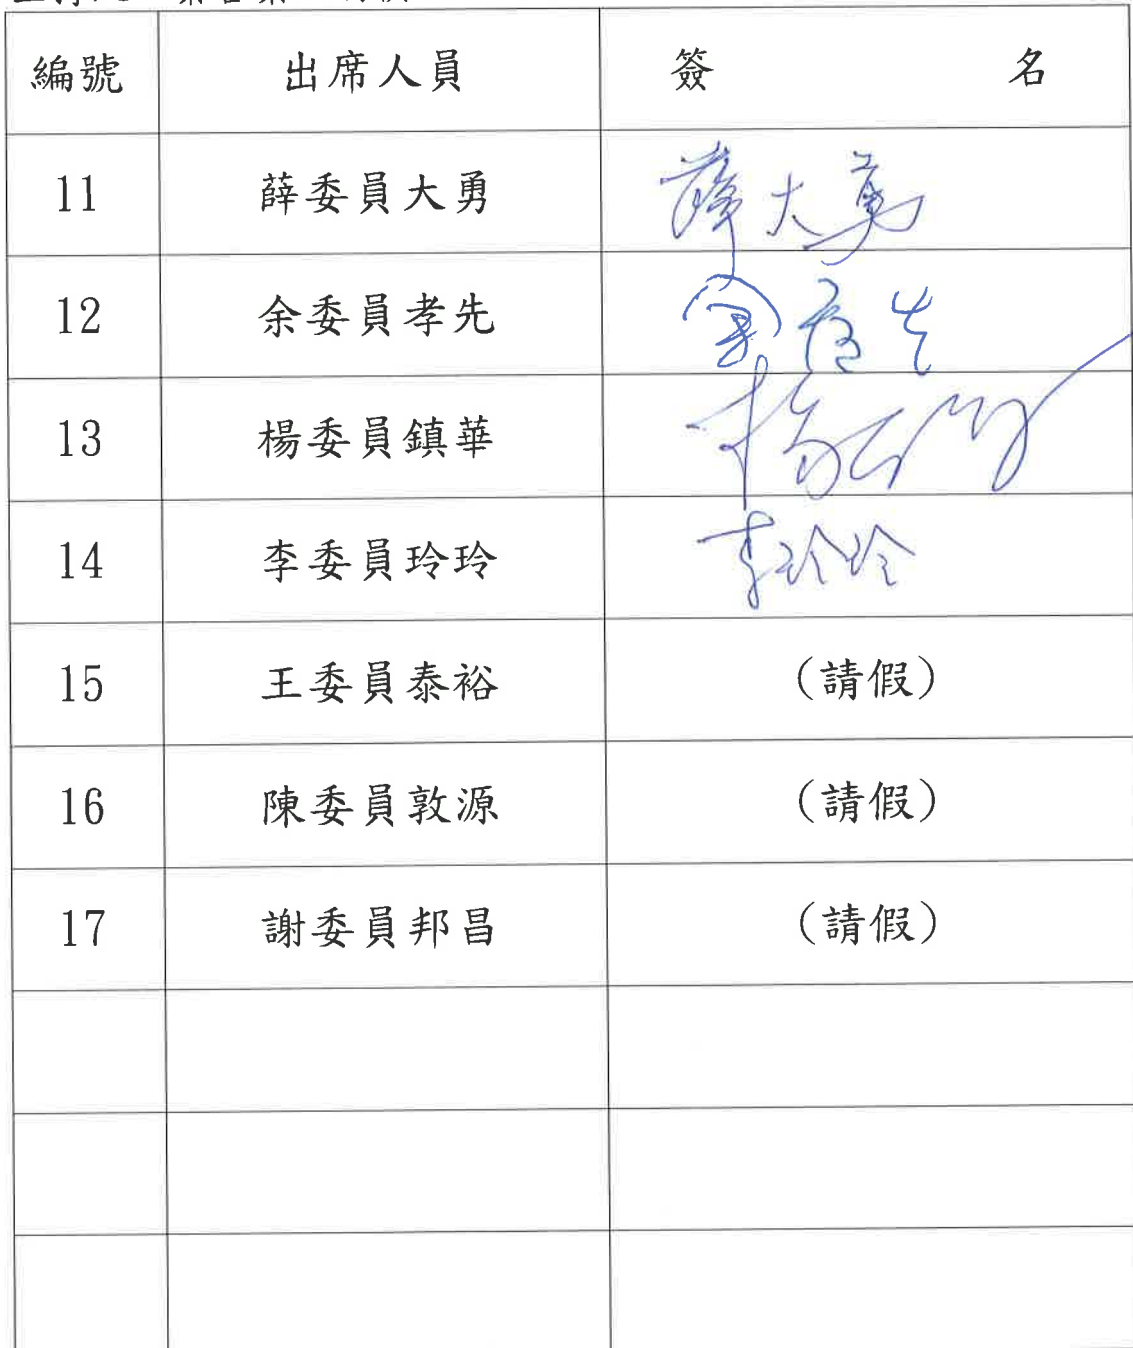 編號 出席人員 簽 名
11 薛委員大勇 薛大勇
12 余委員孝先 余孝先
13 楊委員鎮華
14 李委員玲玲 李玲玲
15 王委員泰裕 (請假)
16 陳委員敦源 (請假)
17 謝委員邦昌 (請假)